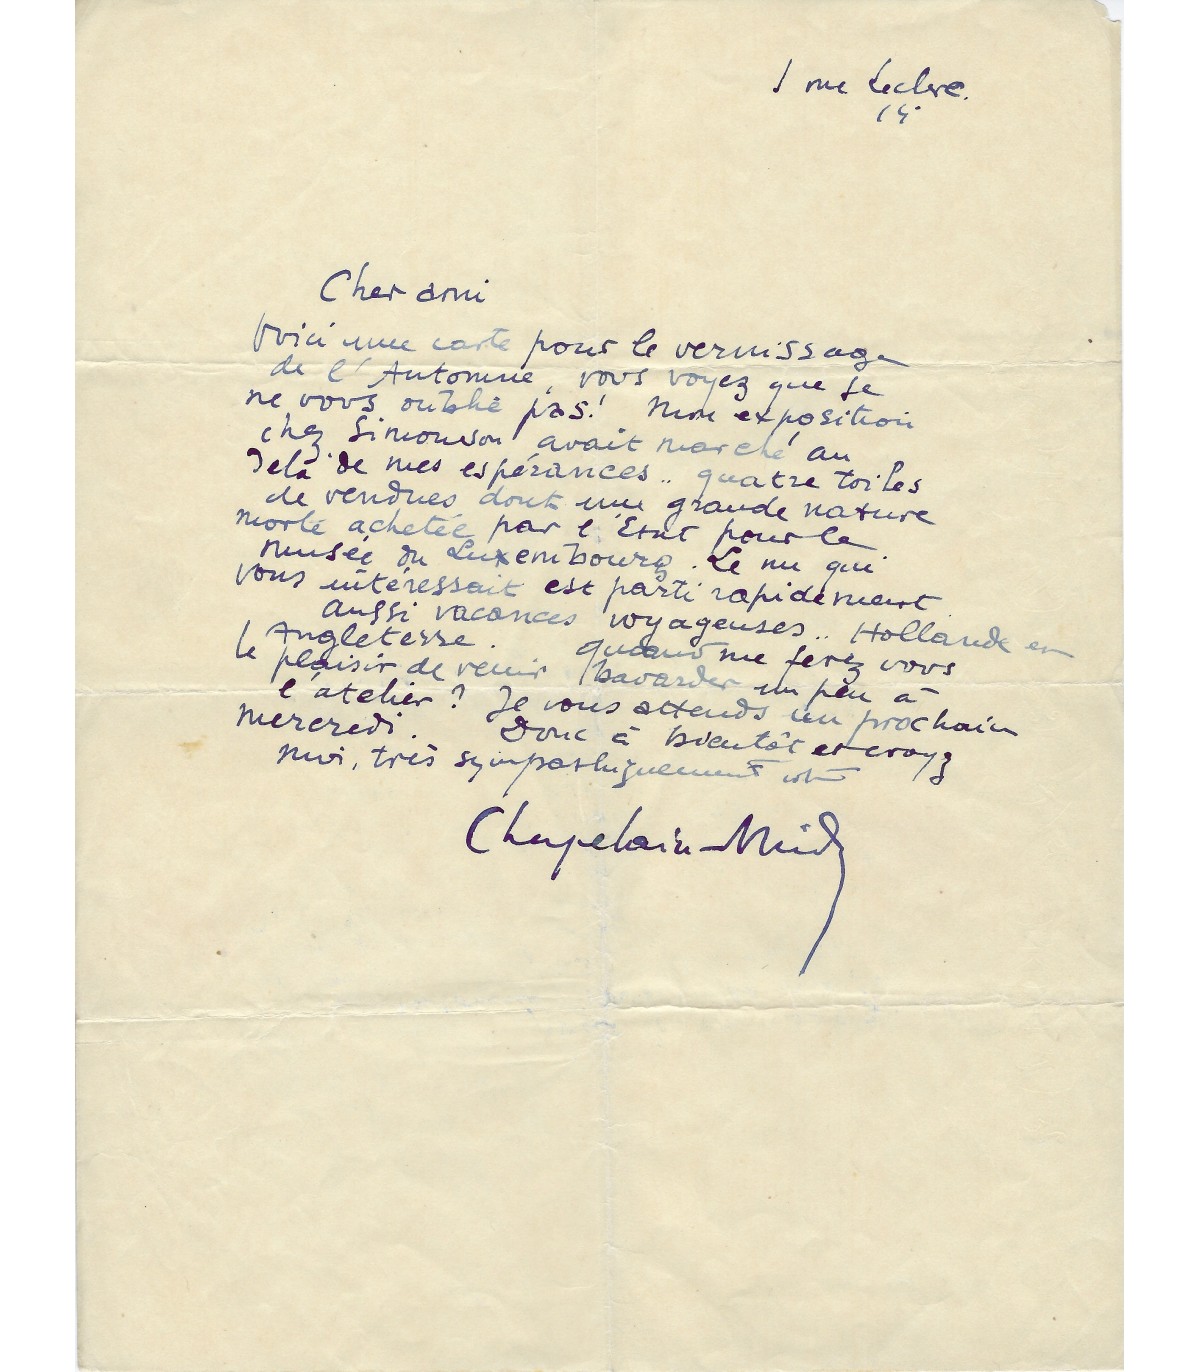 1 rue Leclerc.
14
Cher ami
Voici une carte pour le vernissage
de l'Automne, vous voyez que je
ne vous oublie pas! Mon exposition
chez Simonson avait marché au
delà de mes espérances.. quatre toiles
de vendues dont une grande nature
morte achetée par l'Etat pour le
musée du Luxembourg. Le nu qui
vous intéressait est parti rapidement
aussi vacances voyageuses.. Hollande et
Angleterre. Quand me ferez vous
le plaisir de venir bavarder un peu à
l'atelier? Je vous attends un prochain
mercredi. Donc à bientôt et croyez
moi, très sympathiquement vôtre
Chapelain-Midy